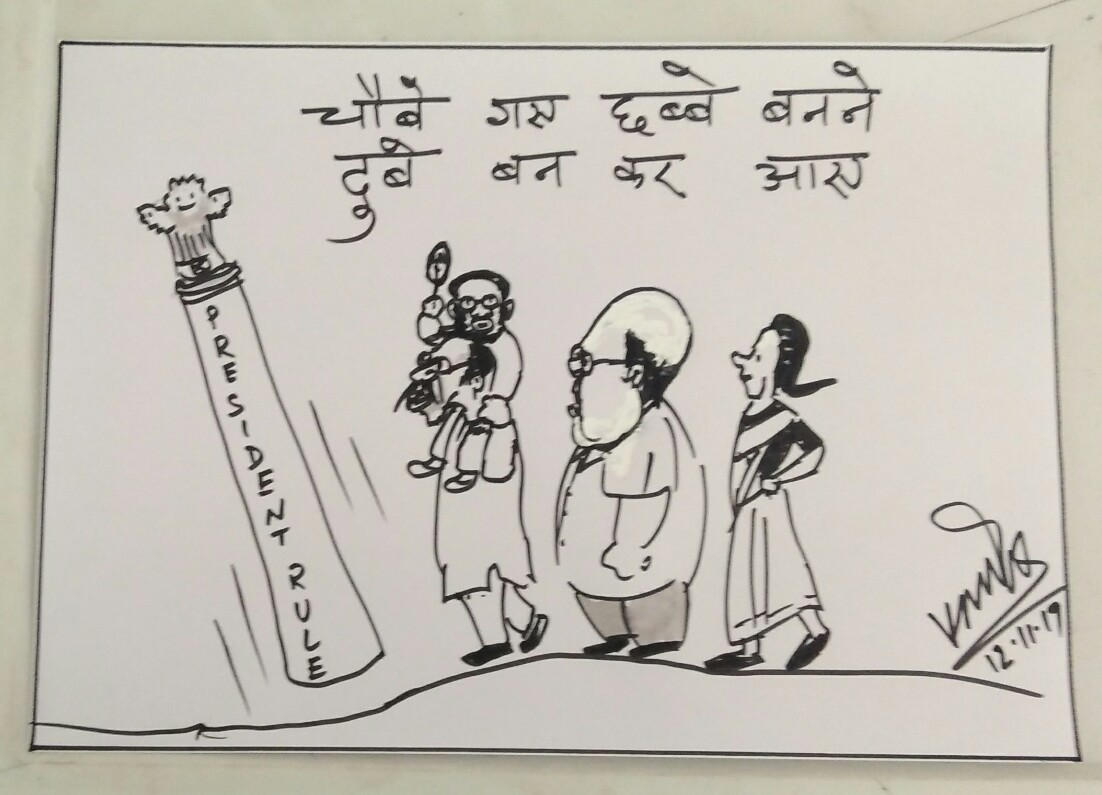 चौबे गए छब्बे बनने
दुबे बन कर आए
PRESIDENT RULE
12.11.19